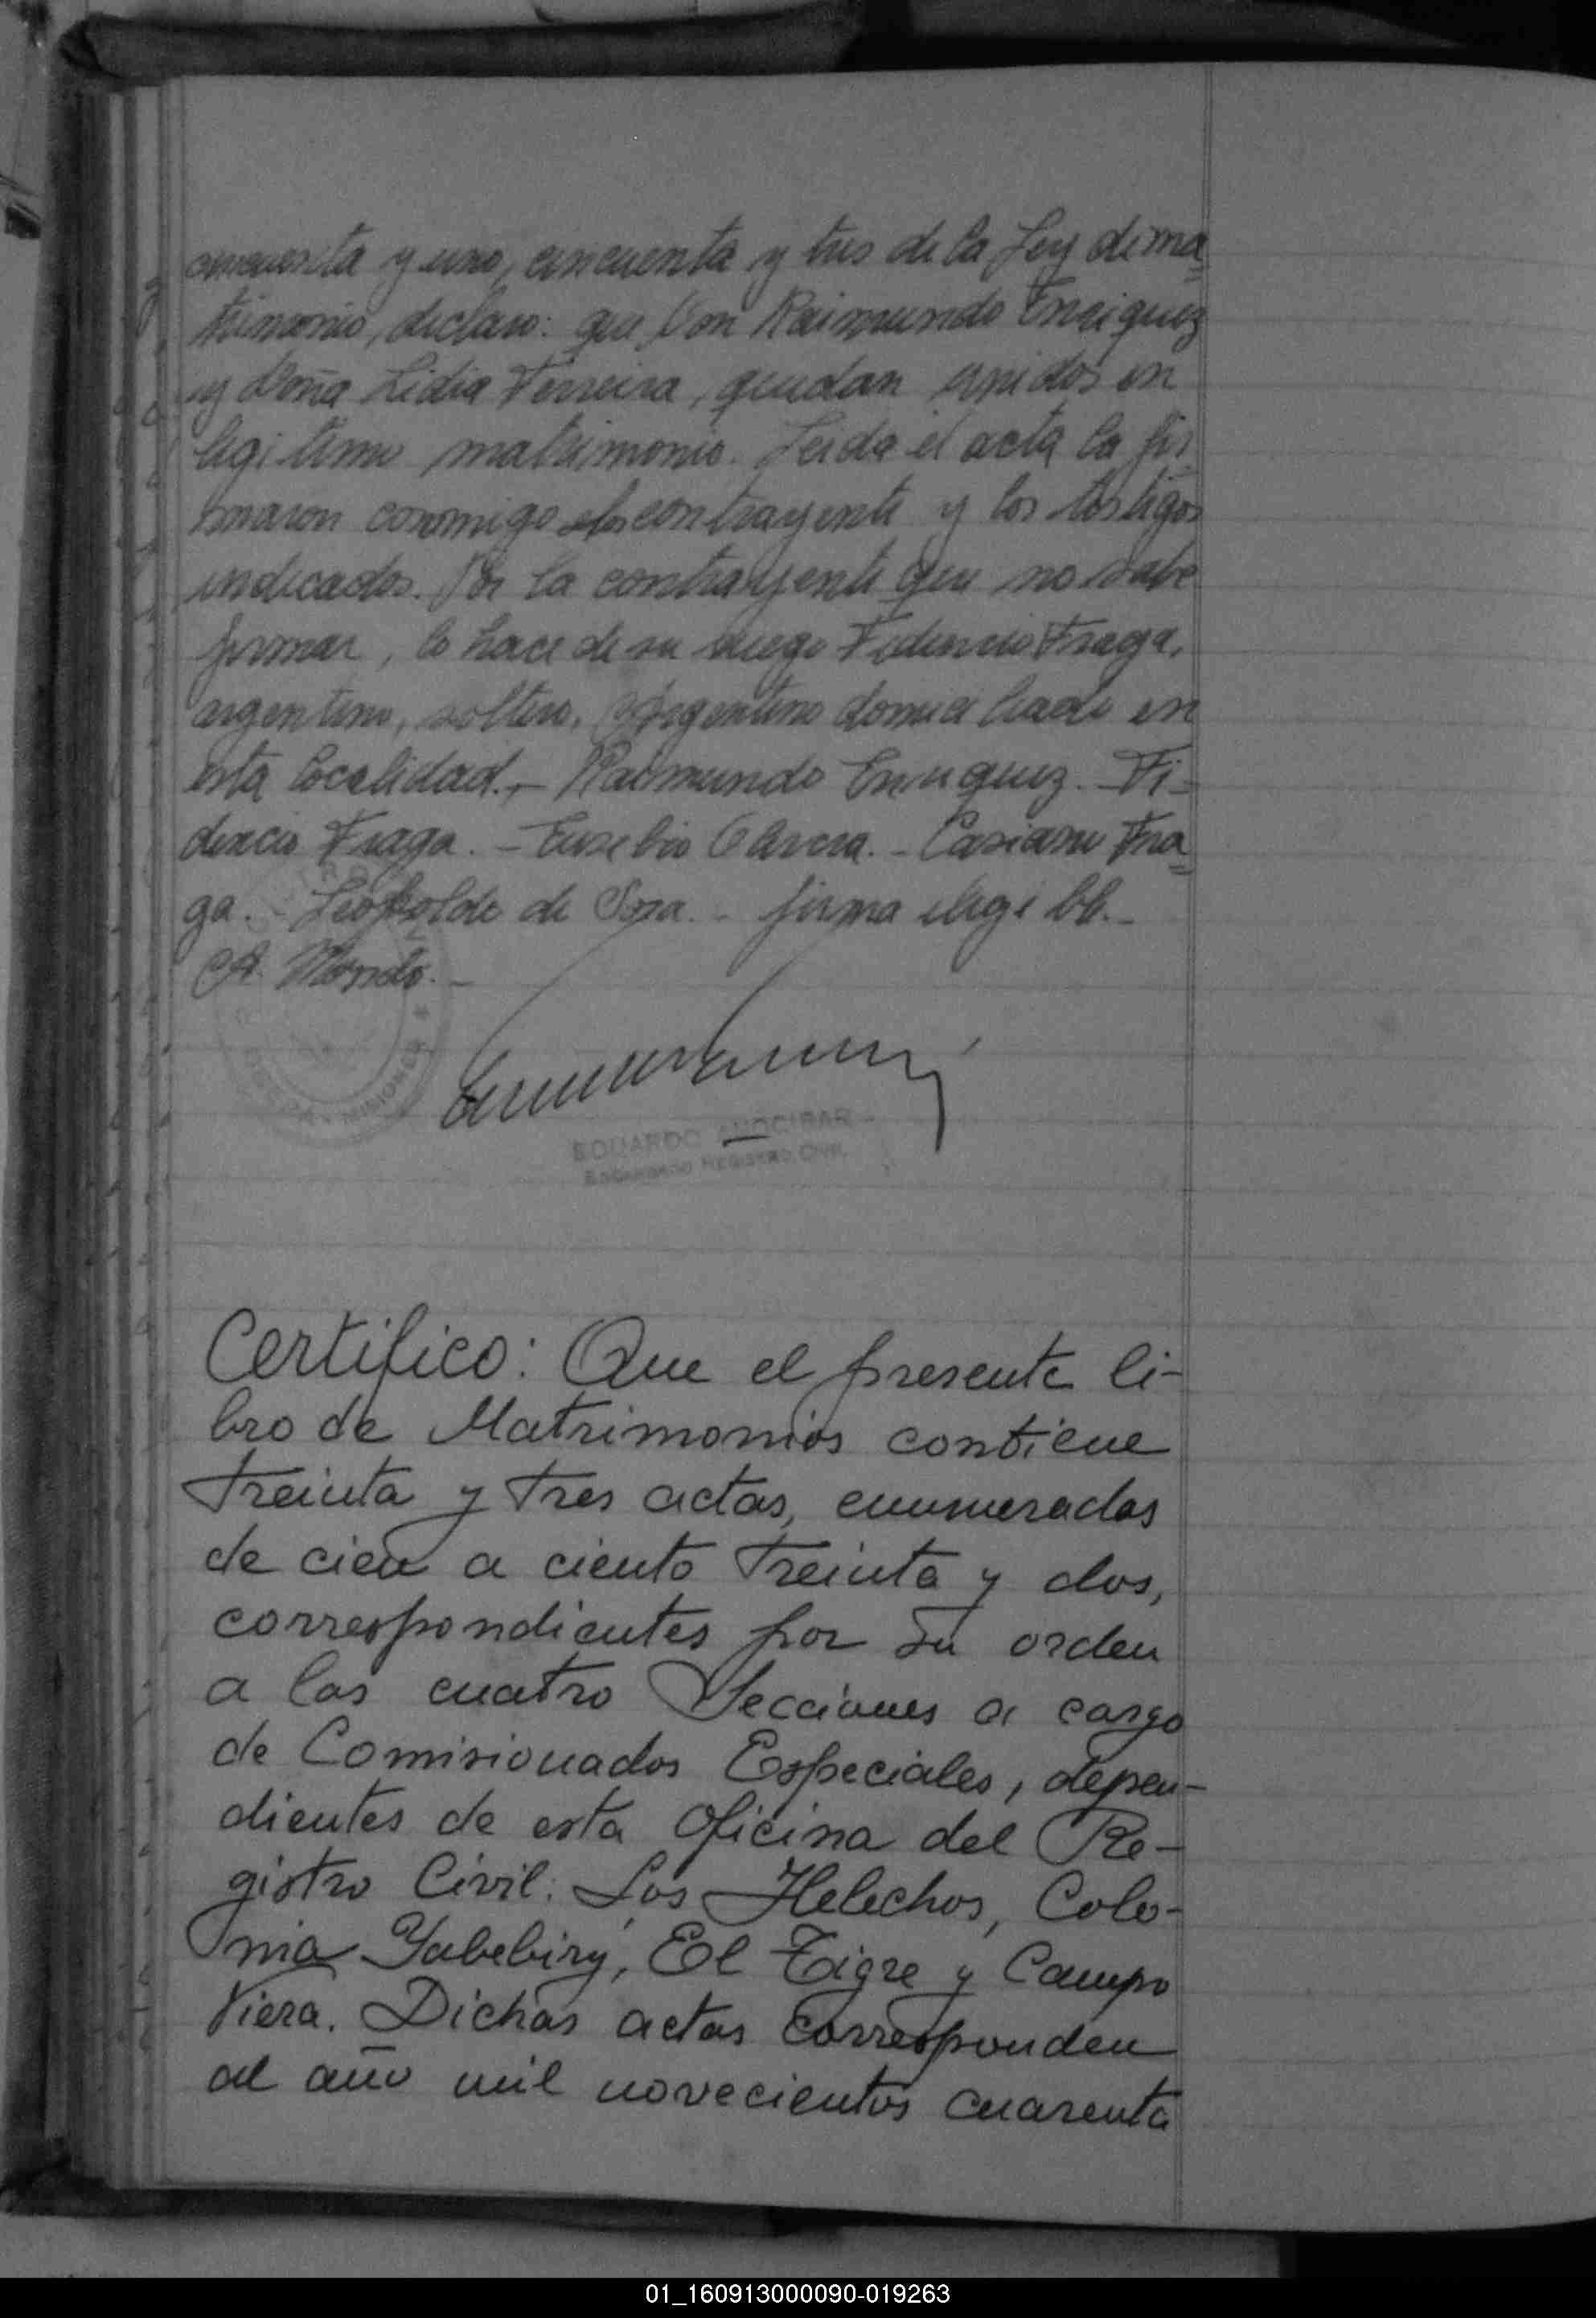 cincuenta y uno, cincuenta y tres de la Ley de ma=
trimonio, declaro: que Don Raimundo Enriquez
y Doña Lidia Ferreira, quedan unidos en
legitimo matrimonio. Leida el acta la fir
maron conmigo el contrayente y los testigos
indicados. Por la contrayente que no sabe
firmar, lo hace de su ruego Fidencio Fraga,
argentino, soltero, Argentino domiciliado en
esta localidad.- Raimundo Enriquez. - Fi-
dencio Fraga. - Eusebio Olivera. - Casiano Fra=
ga. - Leopoldo de Sosa. - firma elegible.-
A. Mondo.-
MISIONES
EDUARDO ANOCIBAR
Encargado Registro Civil
Certifico: Que el presente li-
bro de Matrimonios contiene
treinta y tres actas, enumeradas
de cien a ciento treinta y dos,
correspondientes por su orden
a las cuatro Secciones a cargo
de Comisionados Especiales, depen-
dientes de esta Oficina del Re-
gistro Civil: Los Helechos, Colo-
nia Yabebiry, El Tigre y Campo
Viera. Dichas actas corresponden
al año mil novecientos cuarenta
01_160913000090-019263